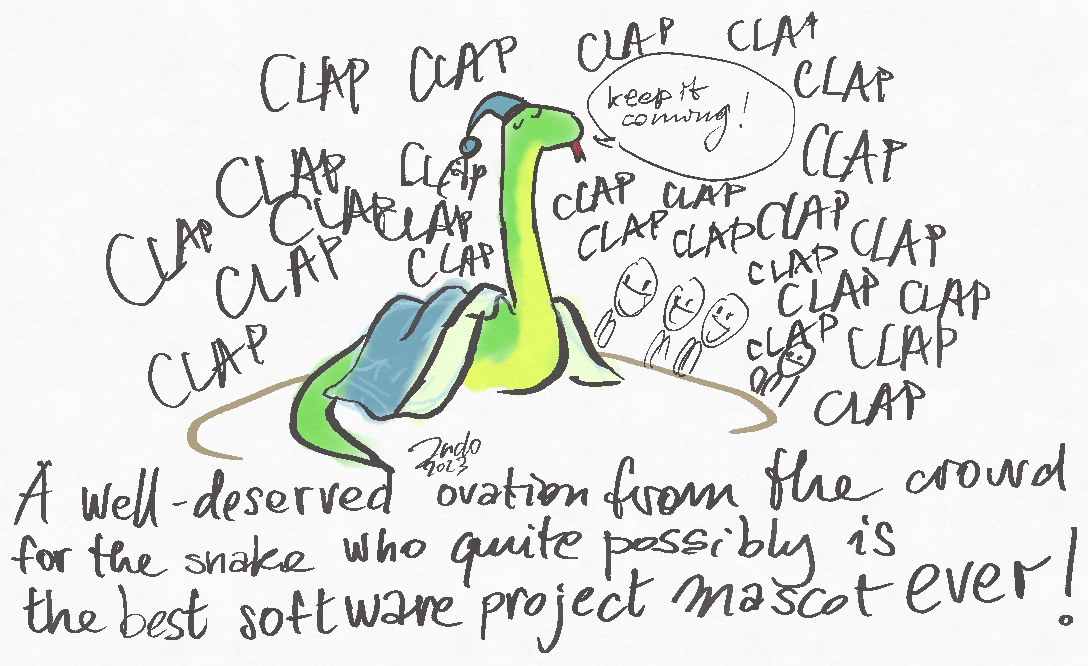 CLAP CLAP CLAP CLAP
CLAP
keep it
coming!
CLAP
CLAP CLAP CLAP CLAP
CLAP CLAP CLAP CLAP CLAP CLAP
CLAP CLAP CLAP CLAP
CLAP CLAP
CLAP CLAP
CLAP CLAP
2023
A well-deserved ovation from the crowd
for the snake who quite possibly is
the best software project mascot ever!